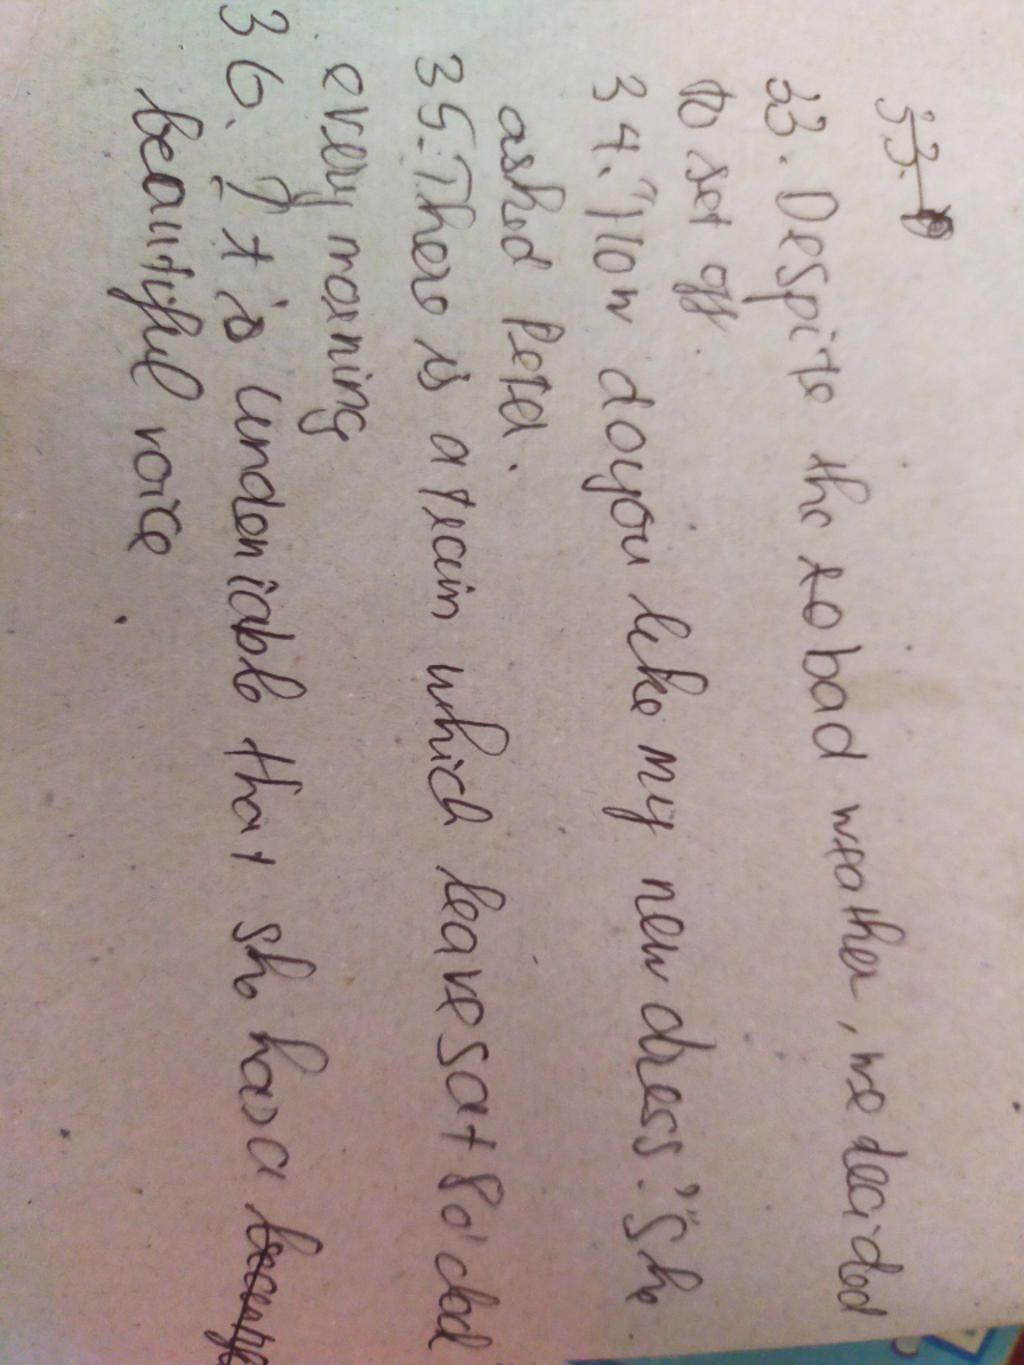 33.
33. Despite the so bad weather, we decided
to set off.
34. "How do you like my new dress?" She
asked Peter.
35. There is a train which leaves at 8 o'cloc
every morning
36. It is undeniable that she has a
beautiful voice.